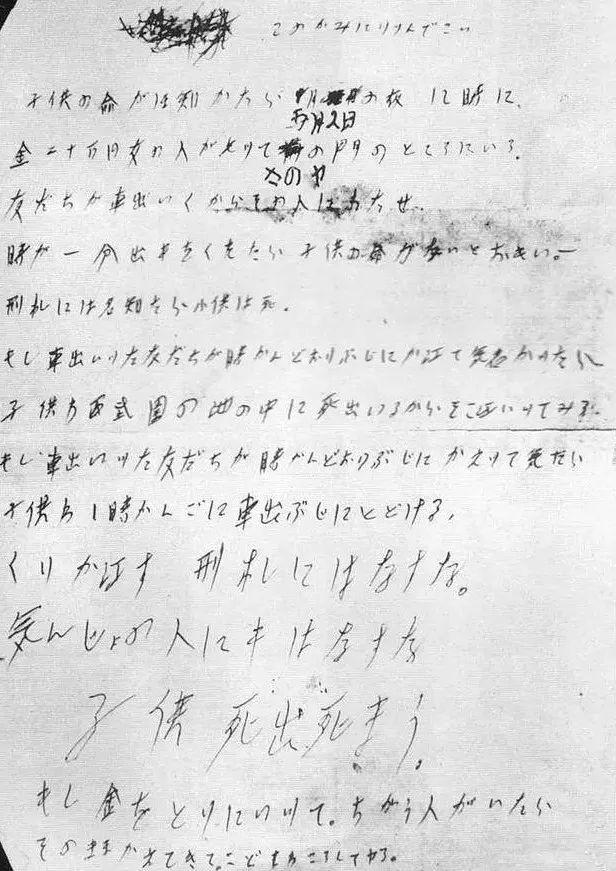 このかみにツツんでこい
子供の命がほ知かたら の夜 12時に、
五月2日
金二十万円女の人がもツて の門のところにいろ.
さのヤ
友だちが車出いくからその人にわたせ
時が一分出キをくれたら子供の命がないとおもい。
刑札には名知たら小供は死.
もし車出いツた友だちが時かんどおりぶじにか江て気名かツたら
子供わ西武園の池の中に死出いるからそこ江いツてみろ.
もし車出いツた友だちが時かんどおりぶじにかえツて気たら
子供わ1時かんごに車出ぶじにとどける.
くりか江す 刑札にはなすな。
気んじょの人にキはなすな
子供死出死まう.
もし金をとりにいツて。ちがう人がいたら
そのままかえてきて。こどもわころしてヤる。